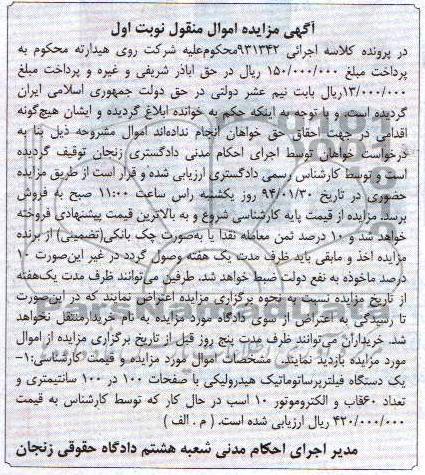 آگهی مزایده اموال منقول نوبت اول
در پرونده کلاسه اجرائی ۹۳۱۳۴۲محکوم‌علیه شرکت روی هیدارته محکوم به
پرداخت مبلغ ۱۵۰/۰۰۰/۰۰۰ ریال در حق اباذر شریفی و غیره و پرداخت مبلغ
۱۳/۰۰۰/۰۰۰ریال بابت نیم عشر دولتی در حق دولت جمهوری اسلامی ایران
گردیده است. و با توجه به اینکه حکم به خوانده ابلاغ گردیده و ایشان هیچ‌گونه
اقدامی در جهت احقاق حق خواهان انجام نداده‌اند اموال مشروحه ذیل بنا به
درخواست خواهان توسط اجرای احکام مدنی دادگستری زنجان توقیف گردیده
است و توسط کارشناس رسمی دادگستری ارزیابی شده و قرار است از طریق مزایده
حضوری در تاریخ ۹۴/۰۱/۳۰ روز یکشنبه راس ساعت ۱۱:۰۰ صبح به فروش
برسد. مزایده از قیمت پایه کارشناسی شروع و به بالاترین قیمت پیشنهادی فروخته
خواهد شد و ۱۰ درصد ثمن معامله نقدا یا به‌صورت چک بانکی(تضمینی) از برنده
مزایده اخذ و مابقی باید ظرف مدت یک هفته وصول گردد در غیر این‌صورت ۱۰
درصد ماخوذه به نفع دولت ضبط خواهد شد. طرفین می‌توانند ظرف مدت یک‌هفته
از تاریخ مزایده نسبت به نحوه برگزاری مزایده اعتراض نمایند که در این‌صورت
تا رسیدگی به اعتراض از سوی دادگاه مورد مزایده به نام خریدارمنتقل نخواهد
شد. خریداران می‌توانند ظرف مدت پنج روز قبل از تاریخ برگزاری مزایده از اموال
مورد مزایده بازدید نمایند. مشخصات اموال مورد مزایده و قیمت کارشناسی:۱-
یک دستگاه فیلترپرساتوماتیک هیدرولیکی با صفحات ۱۰۰ در ۱۰۰ سانتیمتری و
تعداد ۶۰قاب و الکتروموتور ۱۰ اسب در حال کار که توسط کارشناس به قیمت
۴۲۰/۰۰۰/۰۰۰ ریال ارزیابی شده است. ( م . الف )
مدیر اجرای احکام مدنی شعبه هشتم دادگاه حقوقی زنجان